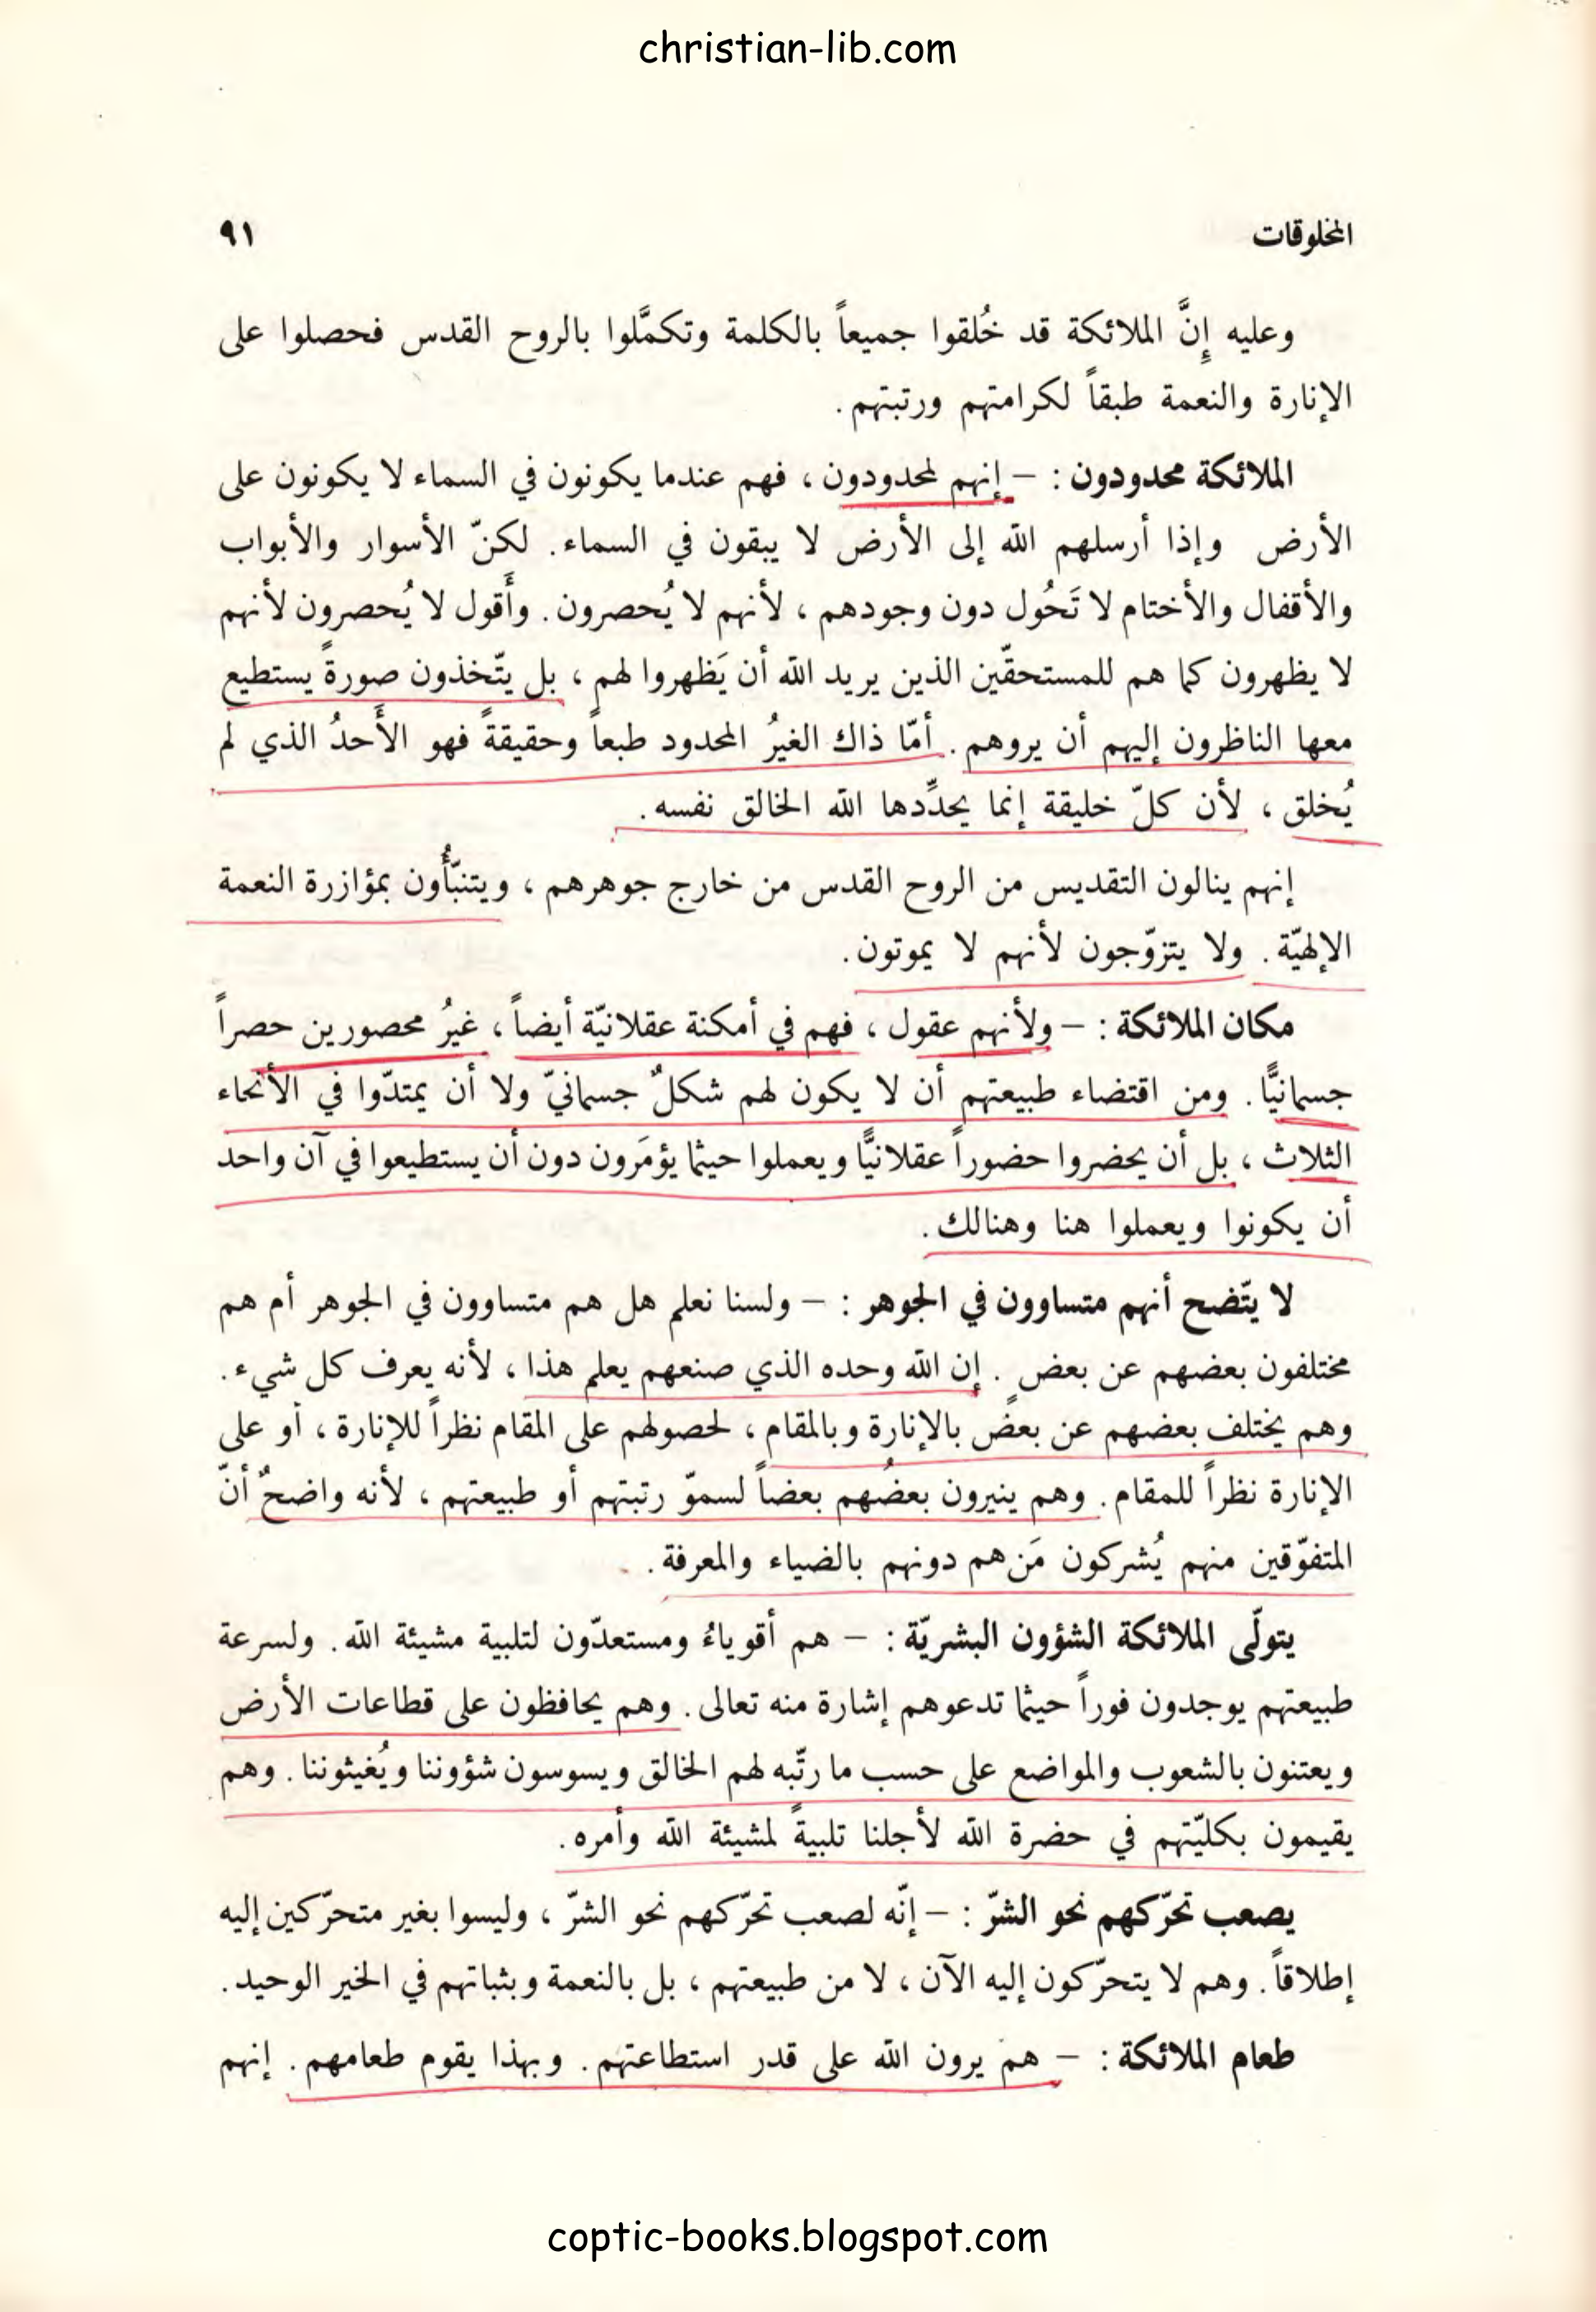 christian-lib.com
المخلوقات ٩١
وعليه إِنَّ الملائكة قد خُلقوا جميعاً بالكلمة وتكمَّلوا بالروح القدس فحصلوا على
الإنارة والنعمة طبقاً لكرامتهم ورتبتهم .
الملائكة محدودون : – إنهم لمحدودون ، فهم عندما يكونون في السماء لا يكونون على
الأرض وإذا أرسلهم الله إلى الأرض لا يبقون في السماء . لكنّ الأسوار والأبواب
والأقفال والأختام لا تَحُول دون وجودهم ، لأنهم لا يُحصرون . وأَقول لا يُحصرون لأنهم
لا يظهرون كما هم للمستحقّين الذين يريد الله أن يَظهروا لهم ، بل يتّخذون صورةً يستطيع
معها الناظرون إليهم أن يروهم . أمّا ذاك الغيرُ المحدود طبعاً وحقيقةً فهو الأَحدُ الذي لم
يُخلق ، لأن كلّ خليقة إنما يحدِّدها الله الخالق نفسه .
إنهم ينالون التقديس من الروح القدس من خارج جوهرهم ، ويتنبّأُون بمؤازرة النعمة
الإلهيّة . ولا يتزوّجون لأنهم لا يموتون .
مكان الملائكة : – ولأنهم عقول ، فهم في أمكنة عقلانيّة أيضاً ، غيرُ محصورين حصراً
جسمانيًّا . ومن اقتضاء طبيعتهم أن لا يكون لهم شكلٌ جسمانيّ ولا أن يمتدّوا في الأنحاء
الثلاث ، بل أن يحضروا حضوراً عقلانيًّا ويعملوا حيثما يؤمَرون دون أن يستطيعوا في آن واحد
أن يكونوا ويعملوا هنا وهنالك .
لا يتّضح أنهم متساوون في الجوهر : – ولسنا نعلم هل هم متساوون في الجوهر أم هم
مختلفون بعضهم عن بعض . إن الله وحده الذي صنعهم يعلم هذا ، لأنه يعرف كل شيء .
وهم يختلف بعضهم عن بعضٍ بالإنارة وبالمقام ، لحصولهم على المقام نظراً للإنارة ، أو على
الإنارة نظراً للمقام . وهم ينيرون بعضُهم بعضاً لسموّ رتبتهم أو طبيعتهم ، لأنه واضحٌ أنّ
المتفوّقين منهم يُشركون مَن هم دونهم بالضياء والمعرفة .
يتولّى الملائكة الشؤون البشريّة : – هم أقوياءُ ومستعدّون لتلبية مشيئة الله . ولسرعة
طبيعتهم يوجدون فوراً حيثما تدعوهم إشارة منه تعالى . وهم يحافظون على قطاعات الأرض
ويعتنون بالشعوب والمواضع على حسب ما رتّبه لهم الخالق ويسوسون شؤوننا ويُغيثوننا . وهم
يقيمون بكليّتهم في حضرة الله لأجلنا تلبيةً لمشيئة الله وأمره .
يصعب تحرّكهم نحو الشرّ : – إنّه لصعب تحرّكهم نحو الشرّ ، وليسوا بغير متحرّكين إليه
إطلاقاً . وهم لا يتحرّكون إليه الآن ، لا من طبيعتهم ، بل بالنعمة وبثباتهم في الخير الوحيد .
طعام الملائكة : – هم يرون الله على قدر استطاعتهم . وبهذا يقوم طعامهم . إنهم
coptic-books.blogspot.com